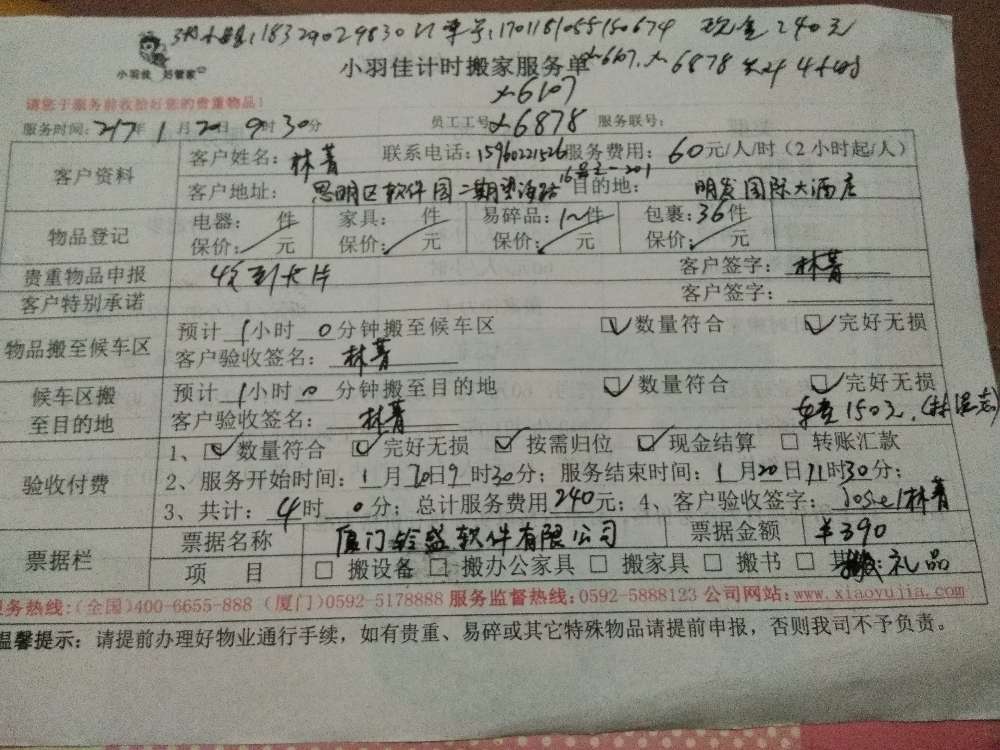 小姐:18329029830 订单号:1701181055150674 现金240元
小羽佳 好管家 小羽佳计时搬家服务单 x6107、x6878 共计4小时
x6107
请您于服务前收拾好您的贵重物品!
服务时间:2017年1月20日9时30分 员工工号 x6878 服务联号:
客户资料 客户姓名:林菁 联系电话:15960221526 服务费用:60元/人/时(2小时起/人)
客户地址:思明区软件园二期望海路16号之一201 目的地:明发国际大酒店
物品登记 电器: 件 家具: 件 易碎品:1~件 包裹:36件
保价: 元 保价: 元 保价: 元 保价: 元
贵重物品申报 卡片 客户签字:林菁
客户特别承诺 客户签字:
物品搬至候车区 预计1小时0分钟搬至候车区 ☑数量符合 ☑完好无损
客户验收签名:林菁
候车区搬至目的地 预计1小时0分钟搬至目的地 ☑数量符合 ☑完好无损
客户验收签名:林菁 车费150元
验收付费 1、☑数量符合 ☑完好无损 ☑按需归位 ☑现金结算 □转账汇款
2、服务开始时间:1月20日9时30分;服务结束时间:1月20日11时30分;
3、共计:4时0分;总计服务费用240元;4、客户验收签字:Josel林菁
票据栏 票据名称 厦门铃盛软件有限公司 票据金额 ¥390
项目 □搬设备 □搬办公家具 □搬家具 □搬书 □其 礼品
服务热线:(全国)400-6655-888 (厦门)0592-5178888 服务监督热线:0592-5888123 公司网站:www.xiaoyujia.com
温馨提示:请提前办理好物业通行手续,如有贵重、易碎或其它特殊物品请提前申报,否则我司不予负责。